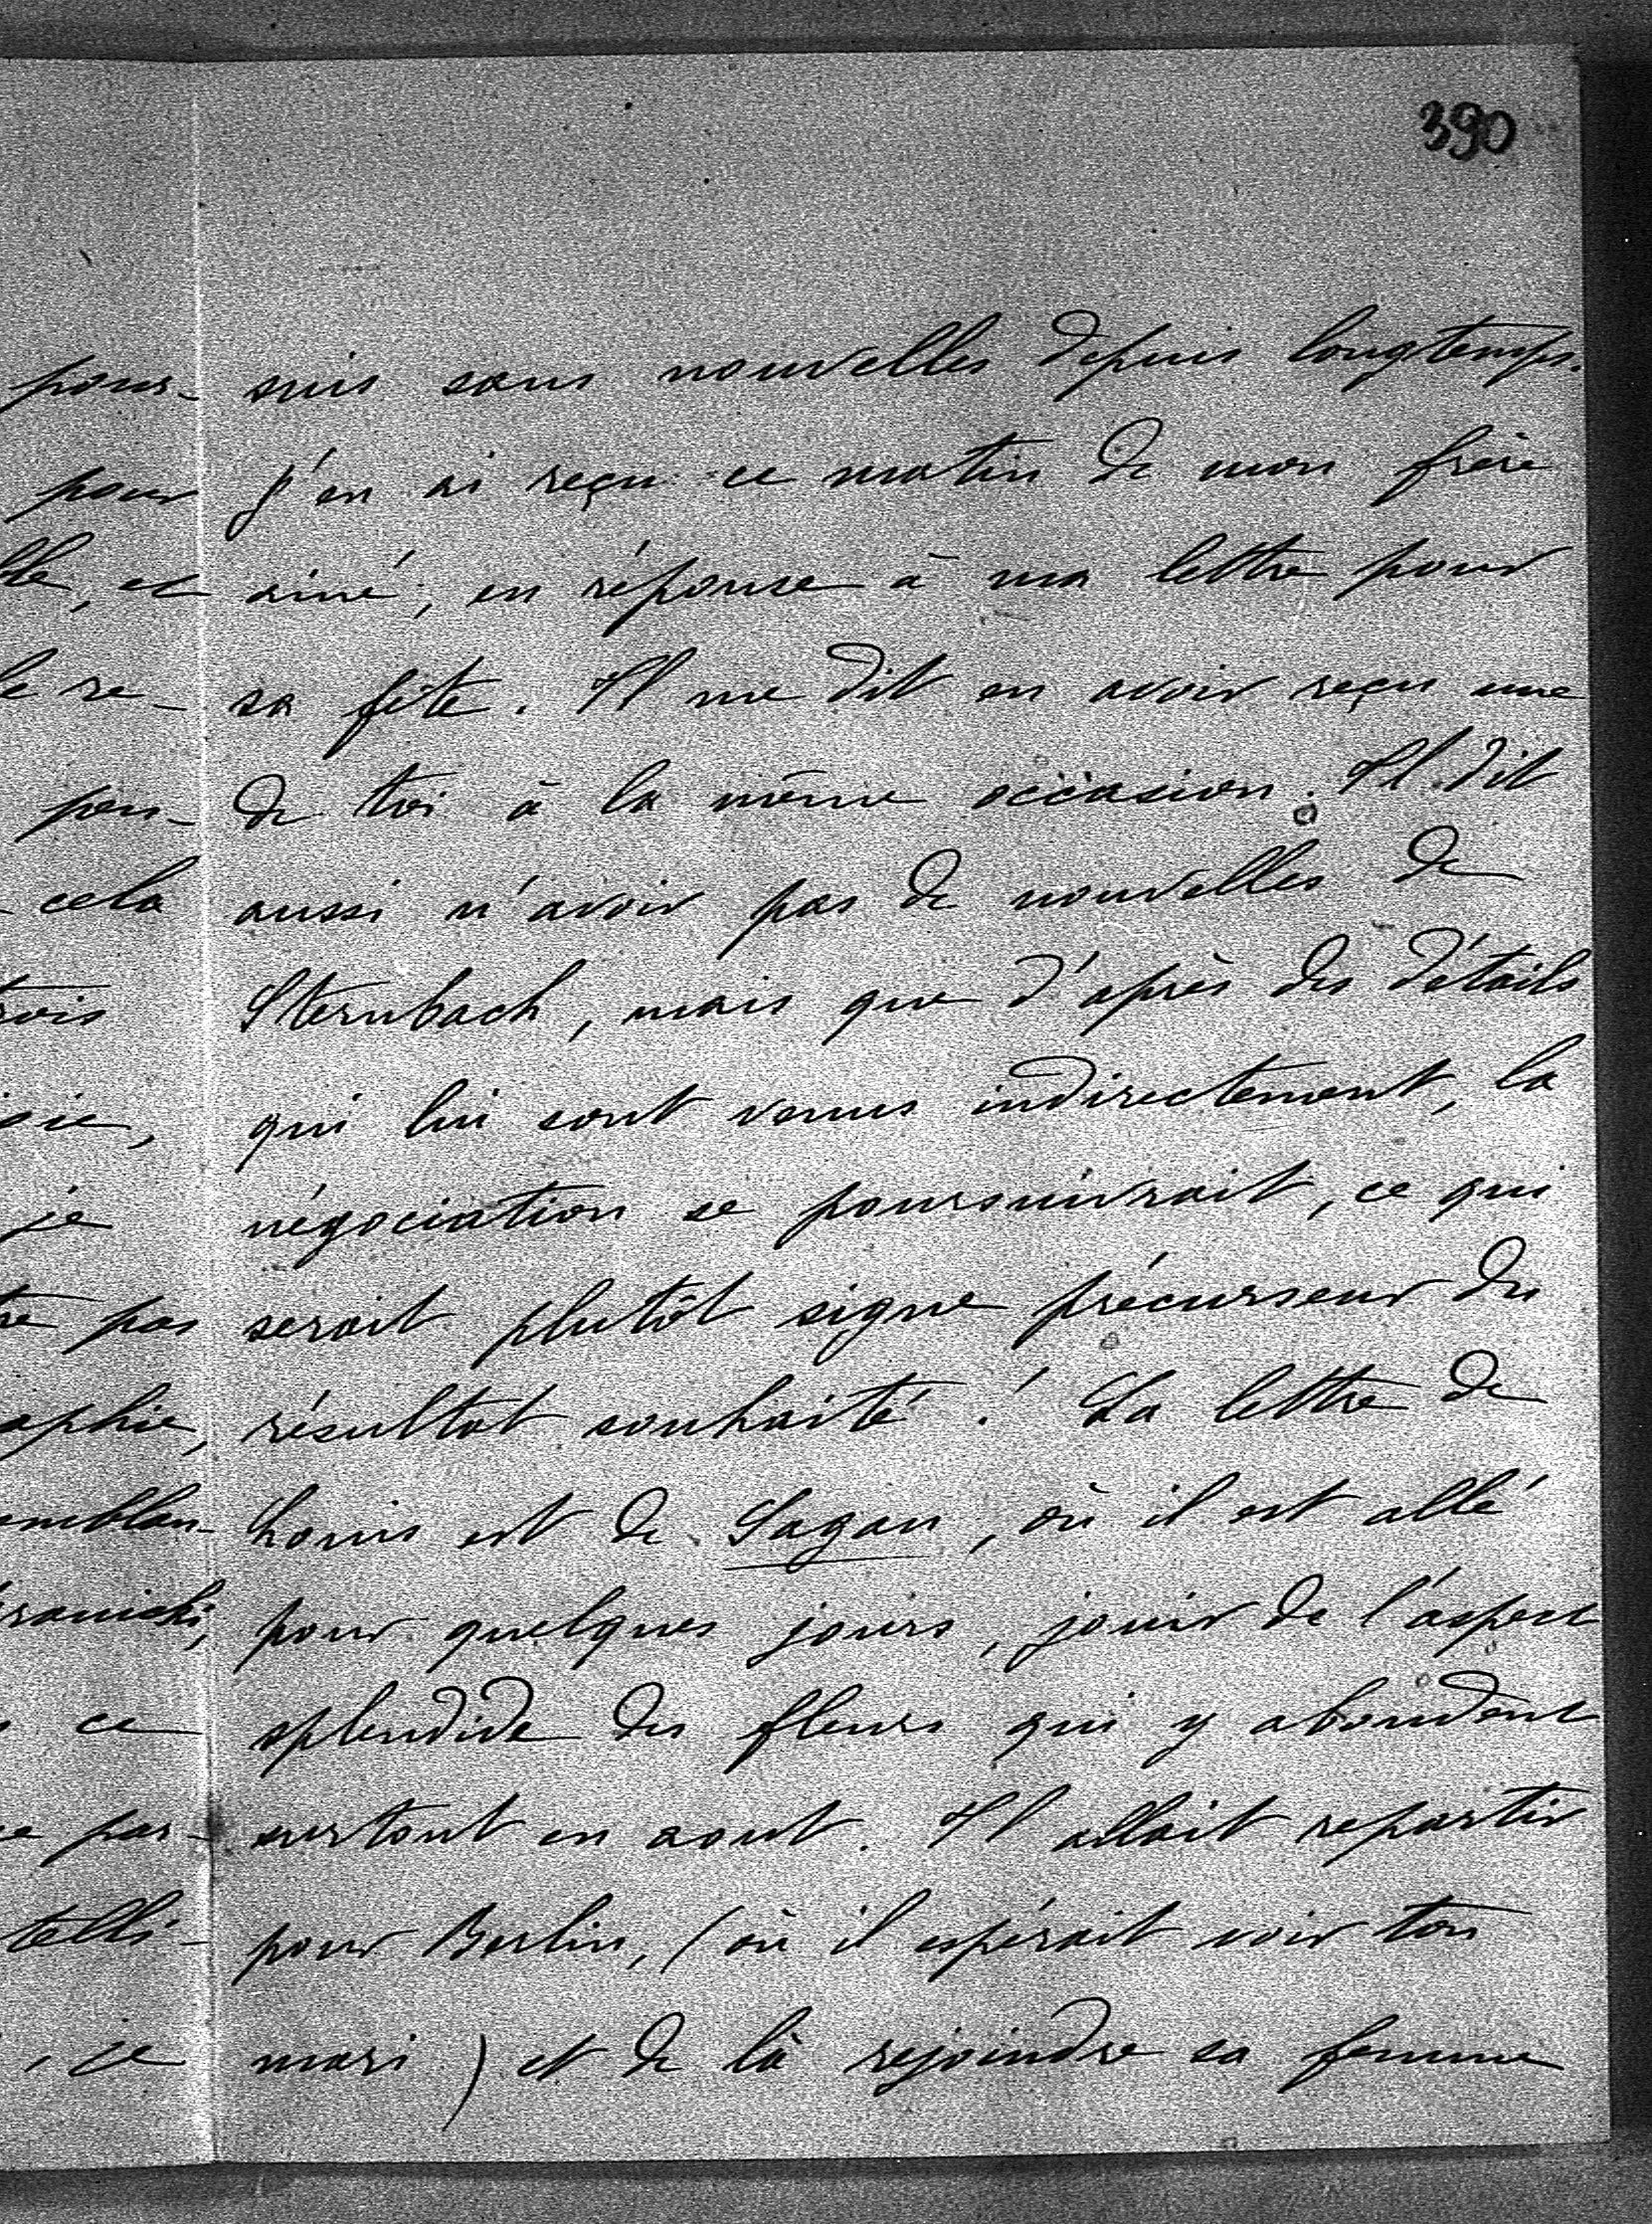 390
suis sans nouvelles depuis longtemps.
J'en ai reçu ce matin de mon frère
ainé, en réponse à ma lettre pour
sa fête. Il me dit en avoir reçu une
de toi à la même occasion. Il dit
aussi n'avoir pas de nouvelles de
Sternbach, mais que d'après des détails
qui lui sont venus indirectement, la
négociation se poursuivrait, ce qui
serait plutôt signe précurseur du
résultat souhaité! La lettre de
Louis est de Sagan, où il est allé
pour quelques jours, jouir de l'aspect
splendide des fleurs qui y abondent
surtout en aout. Il allait repartir
pour Berlin, (où il espérait voir ton
mari) et de là rejoindre sa femme
pour-
pour
lle, et
le re-
pen-
cela
rois
sie,
je
re pas
aphie,
emblan-
ranicki,
ce
ce par-
telli-
, je